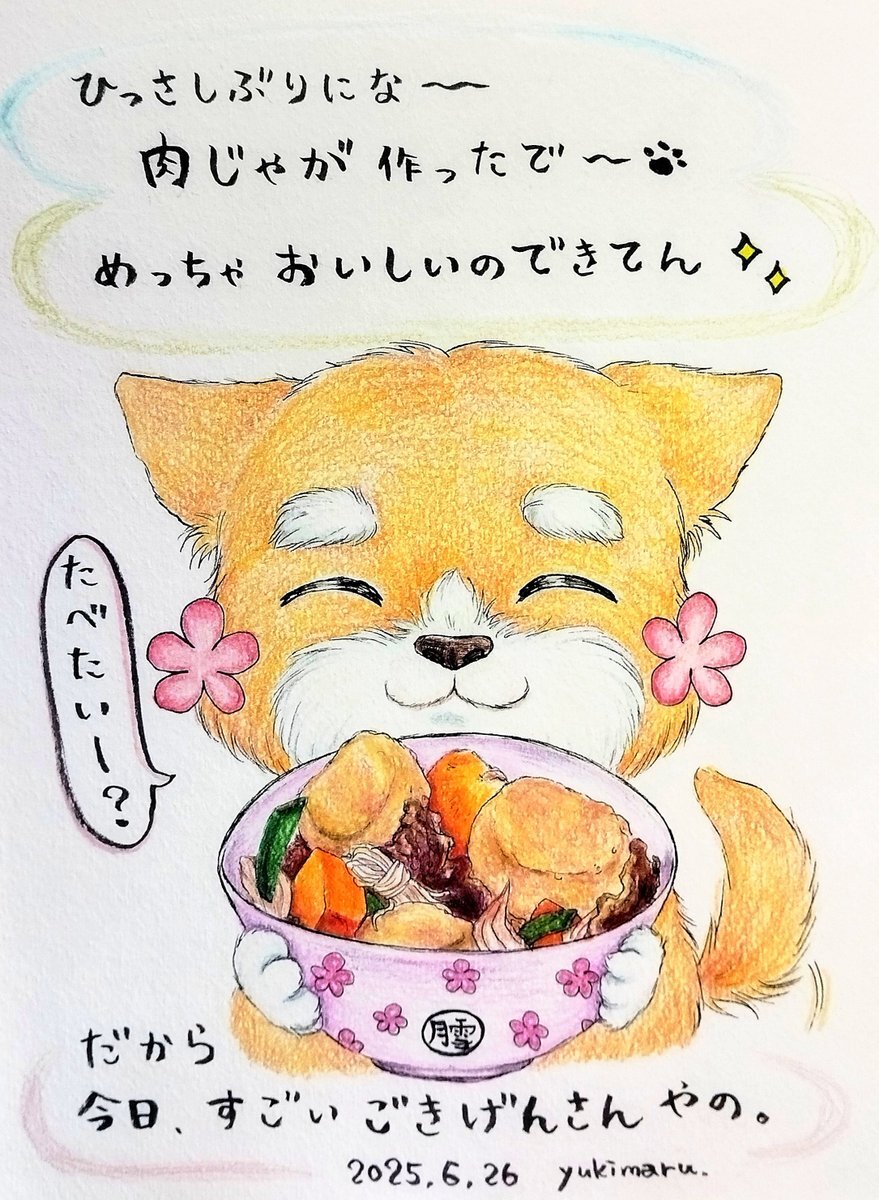 ひっさしぶりにな〜
肉じゃが 作ったで〜
めっちゃ おいしいのできてん
たべたいー?
だから
今日、すごい ごきげんさん やの。
2025.6.26 yukimaru.